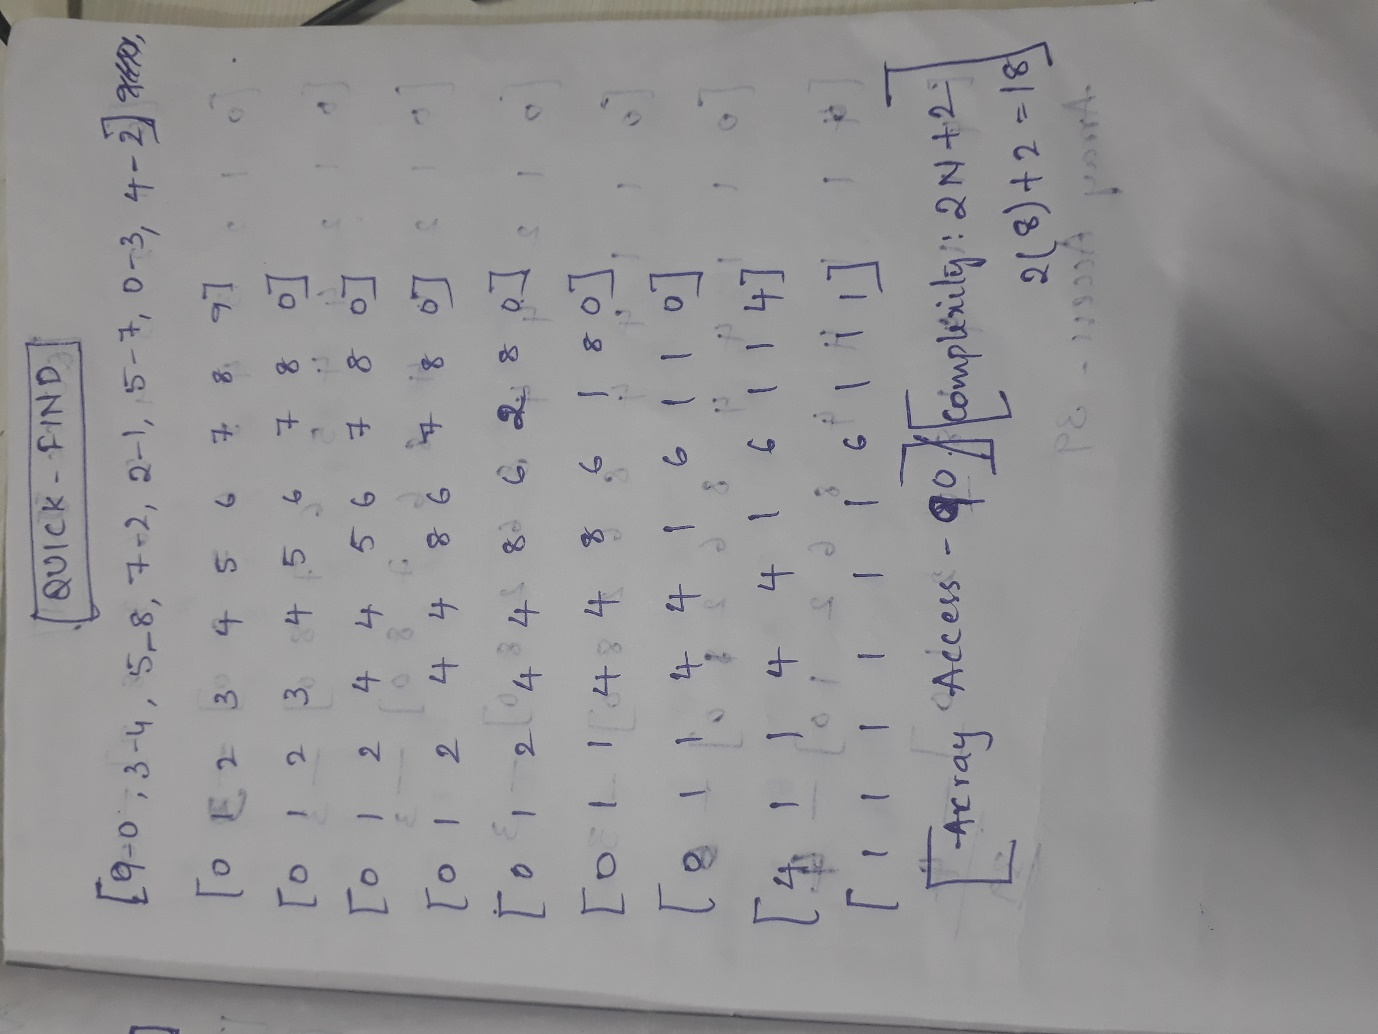 QUICK - FIND
[9-0, 3-4, 5-8, 7-2, 2-1, 5-7, 0-3, 4-2]
[0 1 2 3 4 5 6 7 8 9]
[0 1 2 3 4 5 6 7 8 0]
[0 1 2 4 4 5 6 7 8 0]
[0 1 2 4 4 8 6 7 8 0]
[0 1 2 4 4 8 6 2 8 0]
[0 1 1 4 4 8 6 1 8 0]
[0 1 1 4 4 1 6 1 1 0]
[4 1 1 4 4 1 6 1 1 4]
[1 1 1 1 1 1 6 1 1 1]
[Array Access - 90] [Complexity: 2N+2
2(8)+2=18]
Array Access -